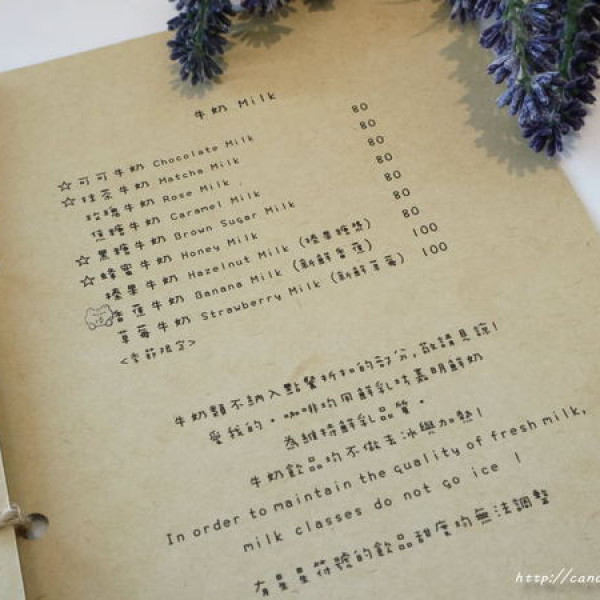 牛奶 Milk
☆可可牛奶 Chocolate Milk 80
☆抹茶牛奶 Matcha Milk 80
玫瑰牛奶 Rose Milk 80
焦糖牛奶 Caramel Milk 80
☆黑糖牛奶 Brown Sugar Milk 80
☆蜂蜜牛奶 Honey Milk 80
榛果牛奶 Hazelnut Milk (榛果糖漿) 80
香蕉牛奶 Banana Milk (新鮮香蕉) 100
草莓牛奶 Strawberry Milk (新鮮草莓) 100
<季節限定>
牛奶類不納入點餐折扣的部分,敬請見諒!
愛我的。咖啡均用鮮乳坊嘉明鮮奶
為維持鮮乳品質。
牛奶飲品均不做去冰與加熱!
In order to maintain the quality of fresh milk,
milk classes do not go ice !
有星星符號的飲品甜度均無法調整
http://canc